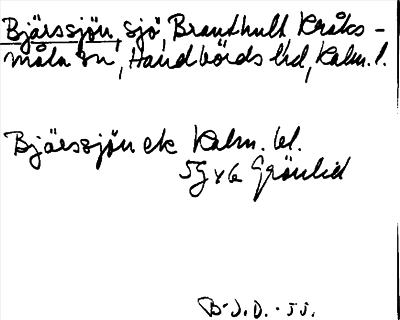 Bjärssjön, sjö, Branthult, Kråks-
måla sn, Handbörds hd, Kalm. l.
Bjärssjön ek Kalm. bl.
5G x 6 Grönlid
B. J. D. - 55.